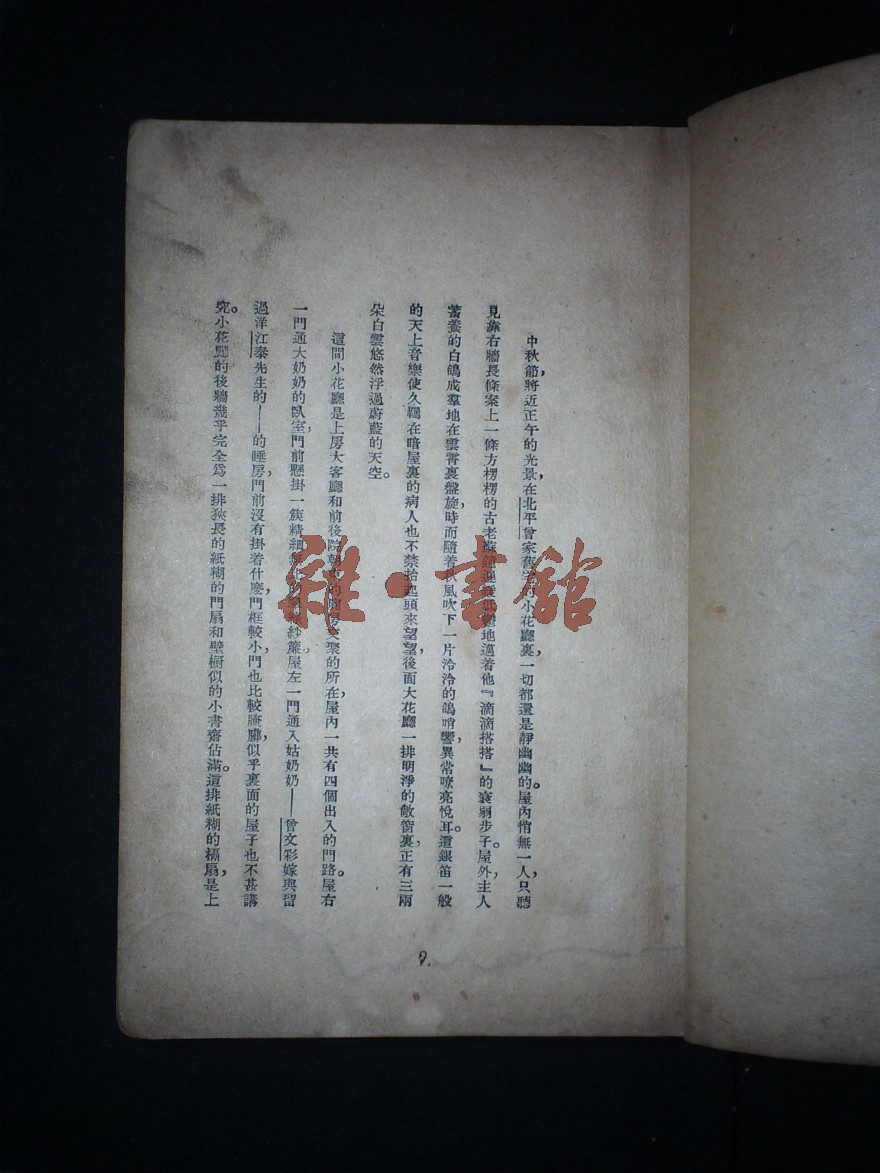 中秋節，將近正午的光景，在北平曾家舊宅的小花廳裏，一切都還是靜幽幽的。屋內悄無一人，只聽
見靠右牆長條案上一條方楞楞的古老蘇鐘遲緩低鬱地邁着他『滴滴搭搭』的衰弱步子。屋外，主人
蓄養的白鴿成羣地在雲霄裏盤旋，時而隨着秋風吹下一片泠泠的鴿哨響，異常嘹亮悅耳。這銀笛一般
的天上音樂使久羈在暗屋裏的病人也不禁抬起頭來望望，後面大花廳一排明淨的敞窗裏，正有三兩
朵白雲悠然浮過蔚藍的天空。
這間小花廳是上房大客廳和前後院朝東的廂房交聚的所在，屋內一共有四個出入的門路。屋右
一門通大奶奶的臥室，門前懸掛一簇精細無比的翠綠紗簾，屋左一門通入姑奶奶——曾文彩嫁與留
過洋江泰先生的——的睡房，門前沒有掛着什麽，門框較小，門也比較腌臢，似乎裏面的屋子也不甚講
究。小花廳的後牆幾乎完全爲一排狹長的紙糊的門扇和壁橱似的小書齋佔滿。這排紙糊的槅扇，是上
雜·書舘